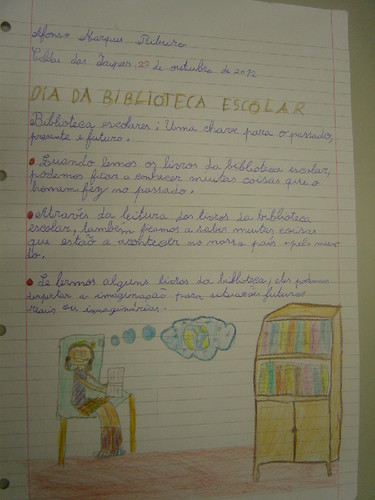 Afonso Marques Ribeiro
Caldas das Taipas, 29 de outubro de 2012
DIA DA BIBLIOTECA ESCOLAR
Biblioteca escolares: Uma chave para o passado,
presente e futuro.
Quando lemos os livros da biblioteca escolar,
podemos ficar a conhecer muitas coisas que o
homem fez no passado.
Através da leitura dos livros da biblioteca
escolar, também ficamos a saber muitas coisas
que estão a acontecer no nosso país e pelo mun-
do.
Se lermos alguns livros da biblioteca, eles podem
despertar a imaginação para situações futuras
reais ou imaginárias.